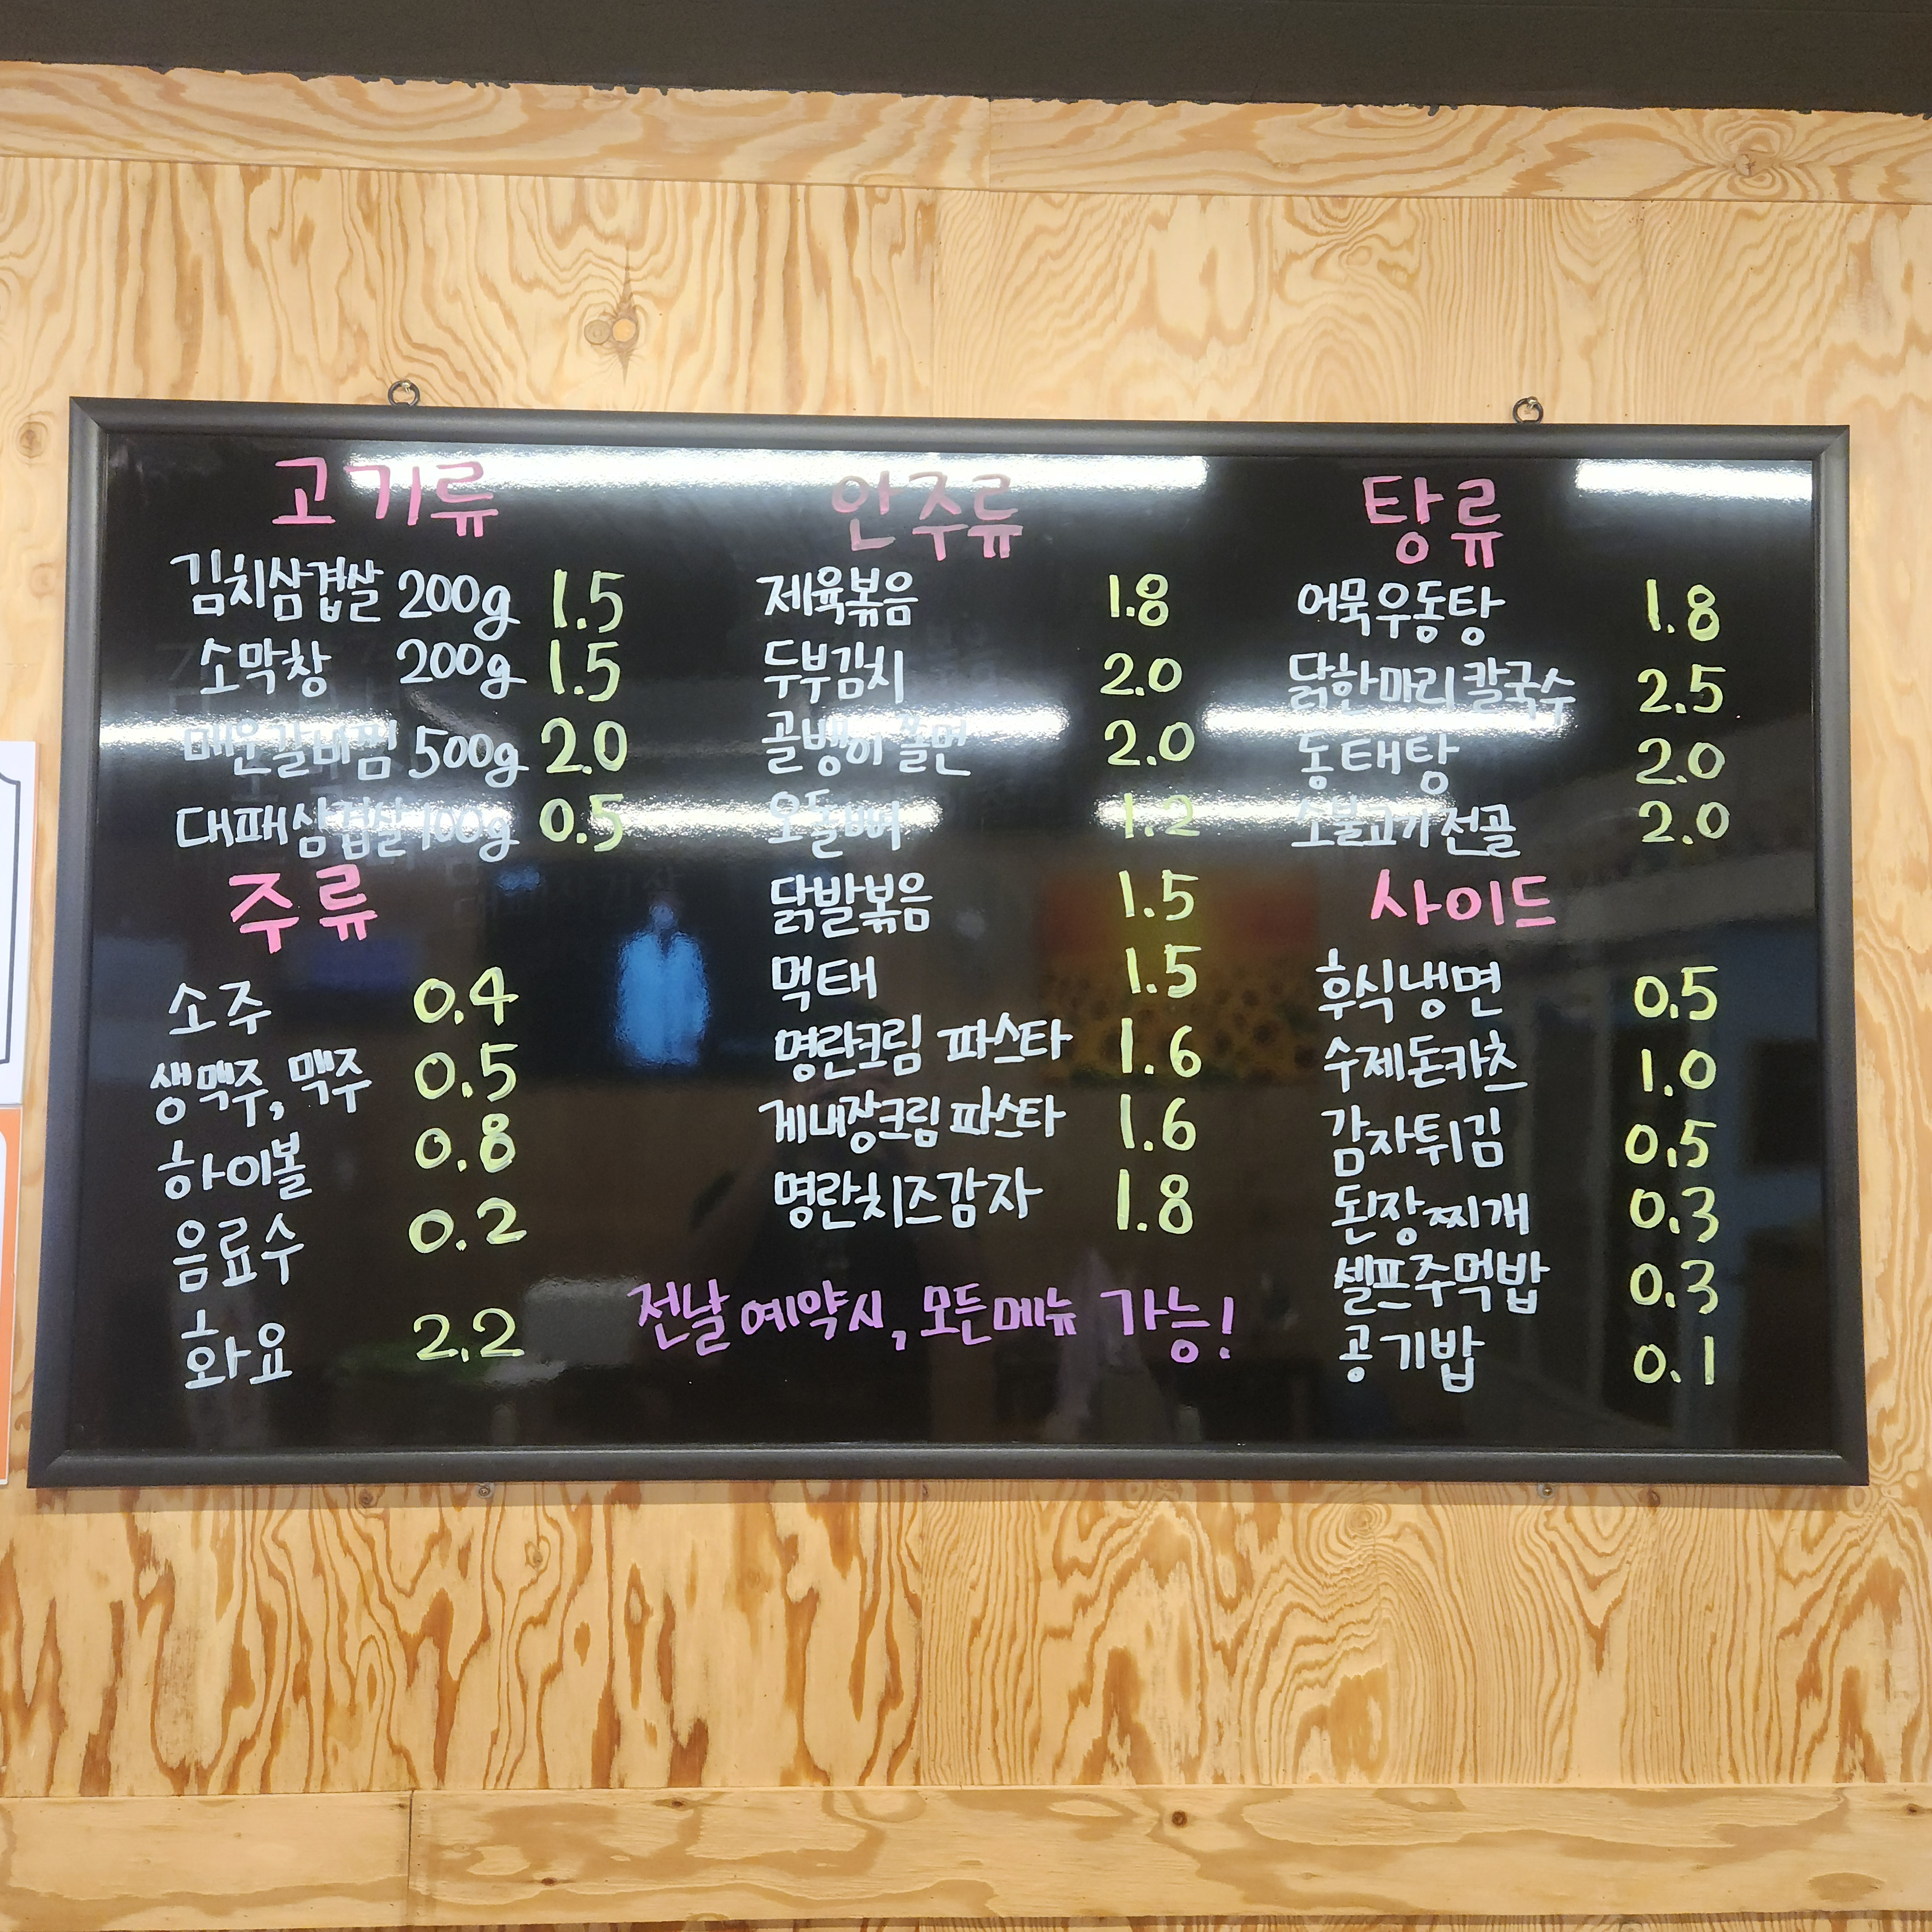 고기류
김치삼겹살 200g 1.5
소막창 200g 1.5
매운갈비찜 500g 2.0
대패삼겹살 100g 0.5
주류
소주 0.4
생맥주, 맥주 0.5
하이볼 0.8
음료수 0.2
화요 2.2
안주류
제육볶음 1.8
두부김치 2.0
골뱅이 쫄면 2.0
오돌뼈 1.2
닭발볶음 1.5
먹태 1.5
명란크림 파스타 1.6
게내장크림 파스타 1.6
명란치즈감자 1.8
탕류
어묵우동탕 1.8
닭한마리칼국수 2.5
동태탕 2.0
소불고기전골 2.0
사이드
후식냉면 0.5
수제돈카츠 1.0
감자튀김 0.5
된장찌개 0.3
셀프주먹밥 0.3
공기밥 0.1
전날 예약시, 모든메뉴 가능!